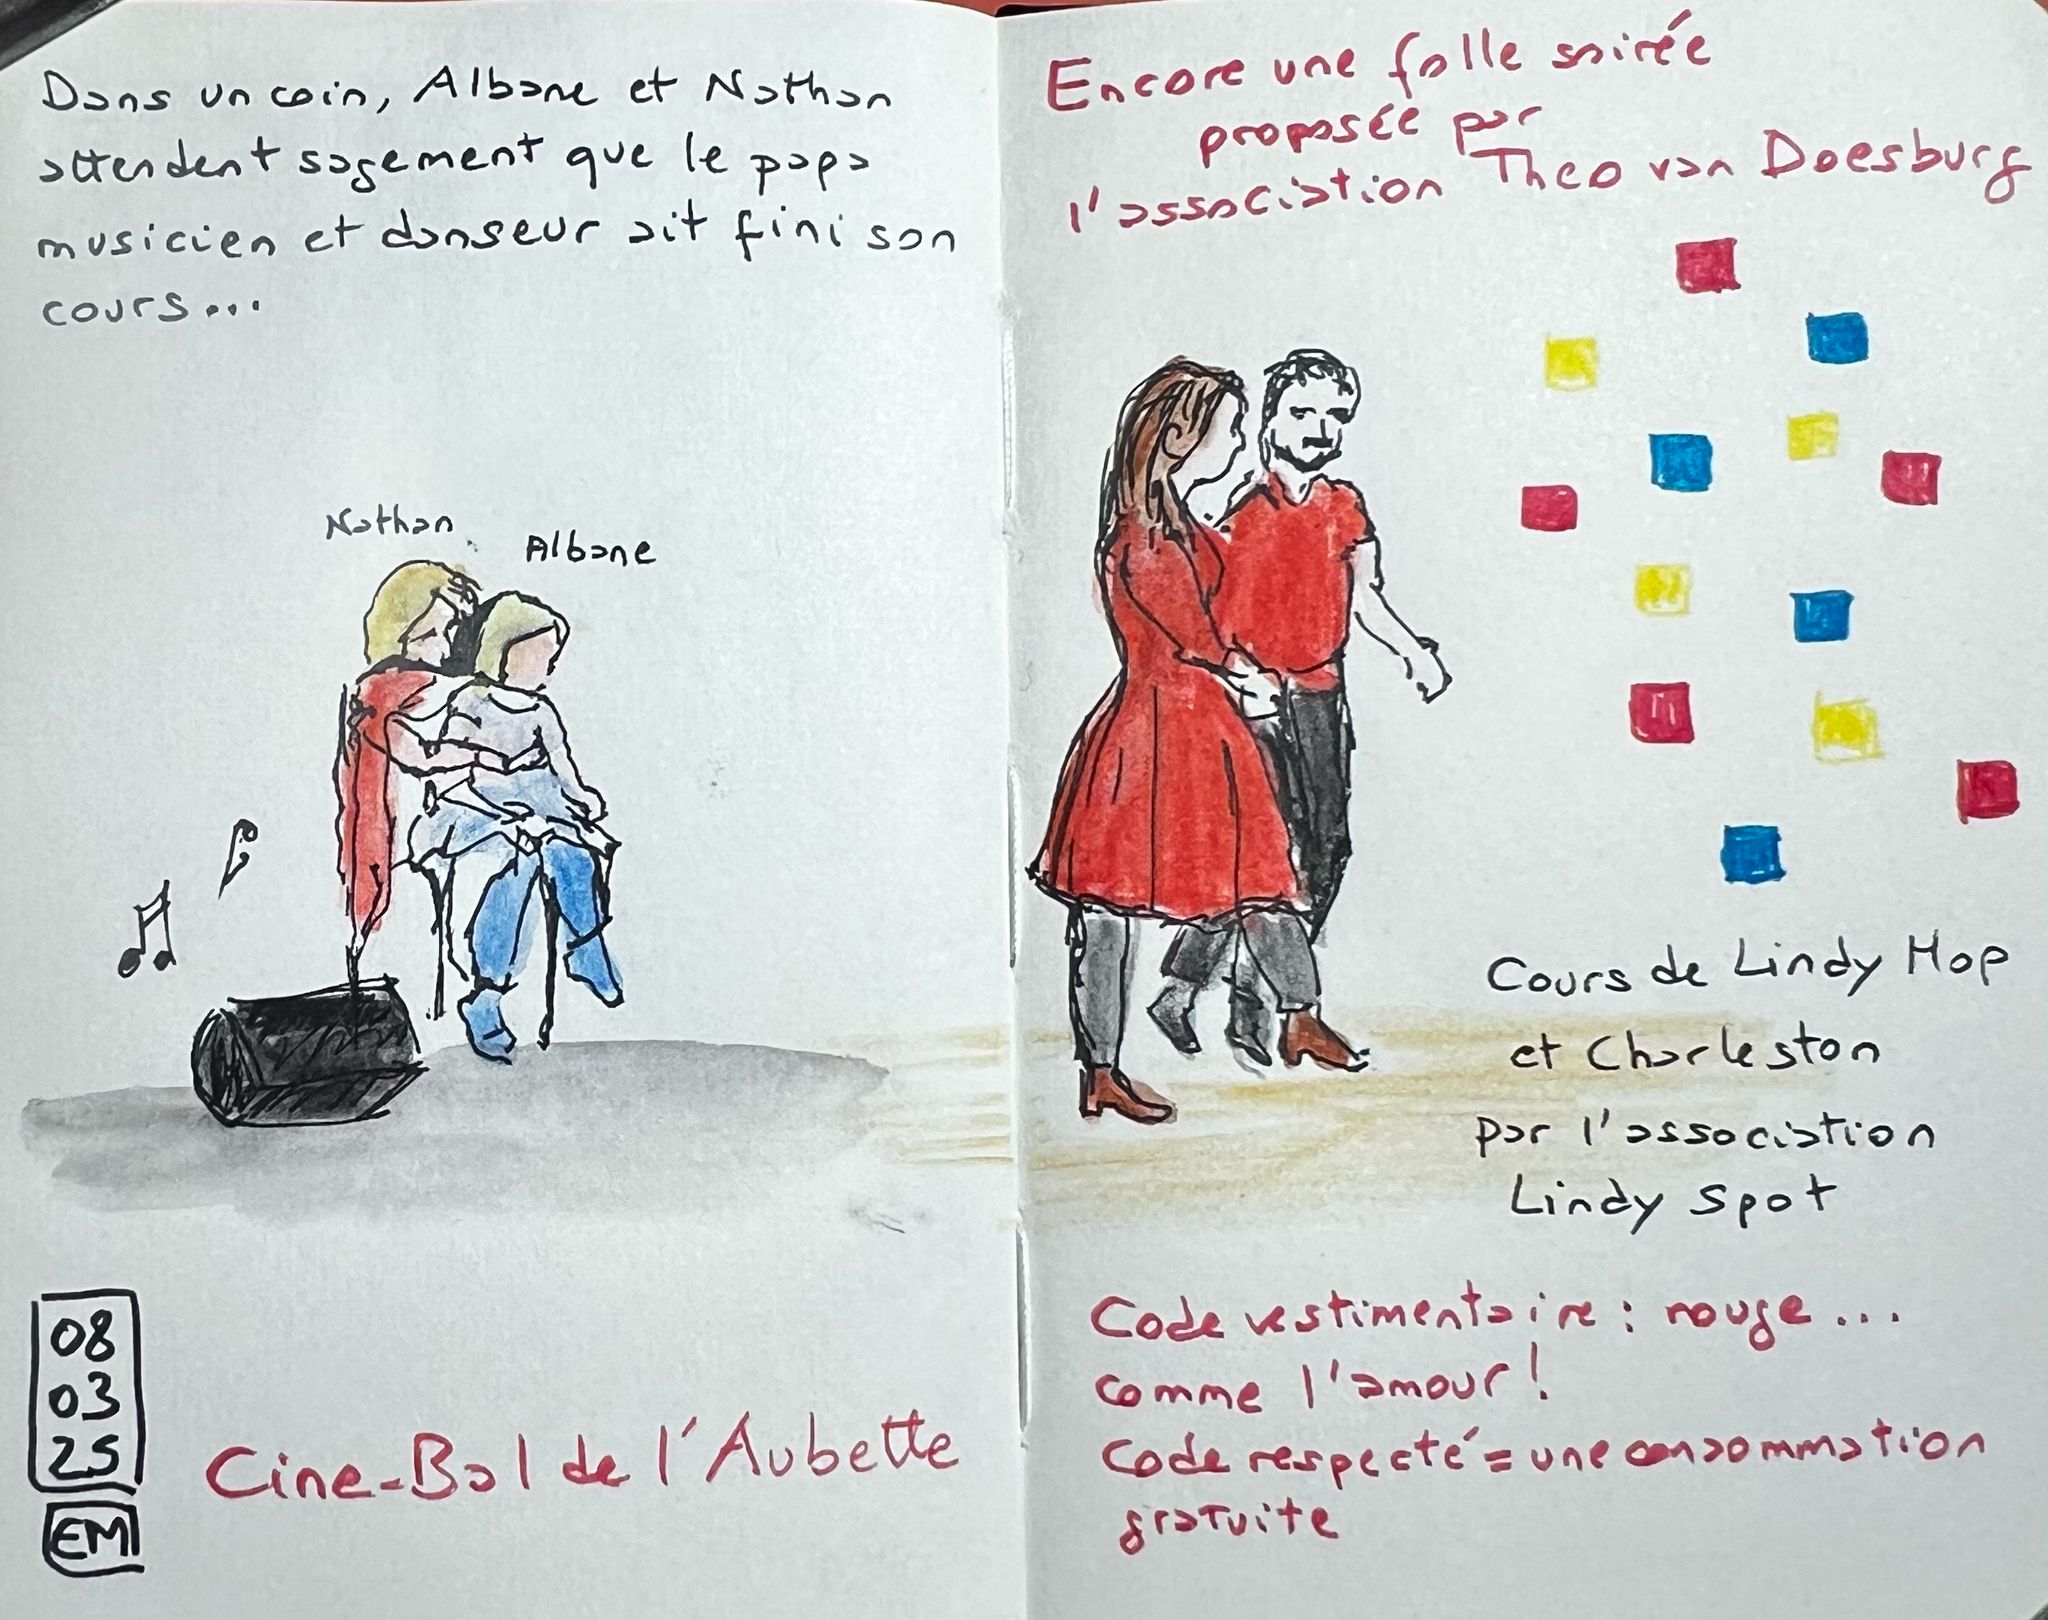 Dans un coin, Albane et Nathan
attendent sagement que le papa
musicien et danseur ait fini son
cours...
Nathan
Albane
08
03
25
EM
Cine-Bal de l'Aubette
Encore une folle soirée
proposée par
l'association Theo van Doesburg
Cours de Lindy Hop
et Charleston
par l'association
Lindy Spot
Code vestimentaire : rouge...
comme l'amour !
Code respecté = une consommation
gratuite